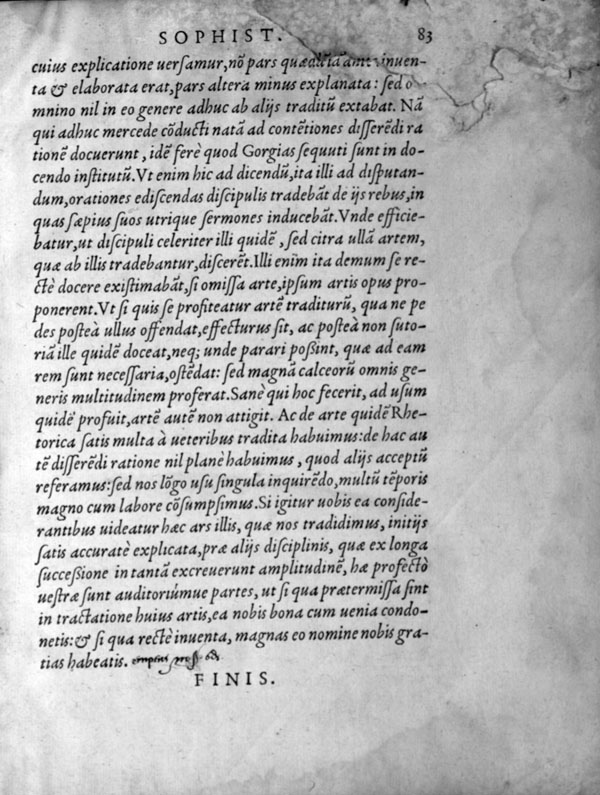 SOPHIST. 83
cuius explicatione uersamur, nõ pars quædã iam ante inuen-
ta & elaborata erat, pars altera minus explanata: sed o-
mnino nil in eo genere adhuc ab alijs traditũ extabat. Nã
qui adhuc mercede cõducti natã ad contẽtiones disserẽdi ra
tionẽ docuerunt, idẽ ferè quod Gorgias sequuti sunt in do-
cendo institutũ. Vt enim hic ad dicendũ, ita illi ad disputan-
dum, orationes ediscendas discipulis tradebãt de ijs rebus, in
quas sæpius suos utrique sermones inducebãt. Vnde efficie-
batur, ut discipuli celeriter illi quidẽ, sed citra ullã artem,
quæ ab illis tradebantur, discerẽt. Illi enim ita demum se re-
ctè docere existimabãt, si omissa arte, ipsum artis opus pro-
ponerent. Vt si quis se profiteatur artẽ traditurũ, qua ne pe
des posteà ullus offendat, effecturus sit, ac posteà non suto-
riã ille quidẽ doceat, neq; unde parari poßint, quæ ad eam
rem sunt necessaria, ostẽdat: sed magnã calceorũ omnis ge-
neris multitudinem proferat. Sanè qui hoc fecerit, ad usum
quidẽ profuit, artẽ autẽ non attigit. Ac de arte quidẽ Rhe-
torica satis multa à ueteribus tradita habuimus: de hac au
tẽ disserẽdi ratione nil planè habuimus, quod alijs acceptũ
referamus: sed nos lõgo usu singula inquirẽdo, multũ tẽporis
magno cum labore cõsumpsimus. Si igitur uobis ea conside-
rantibus uideatur hæc ars illis, quæ nos tradidimus, initijs
satis accuratè explicata, præ alijs disciplinis, quæ ex longa
succeßione in tantã excreuerunt amplitudinẽ, hæ profectò
uestræ sunt auditoriúmue partes, ut si qua prætermissa sint
in tractatione huius artis, ea nobis bona cum uenia condo-
netis: & si qua rectè inuenta, magnas eo nomine nobis gra-
tias habeatis.
FINIS.